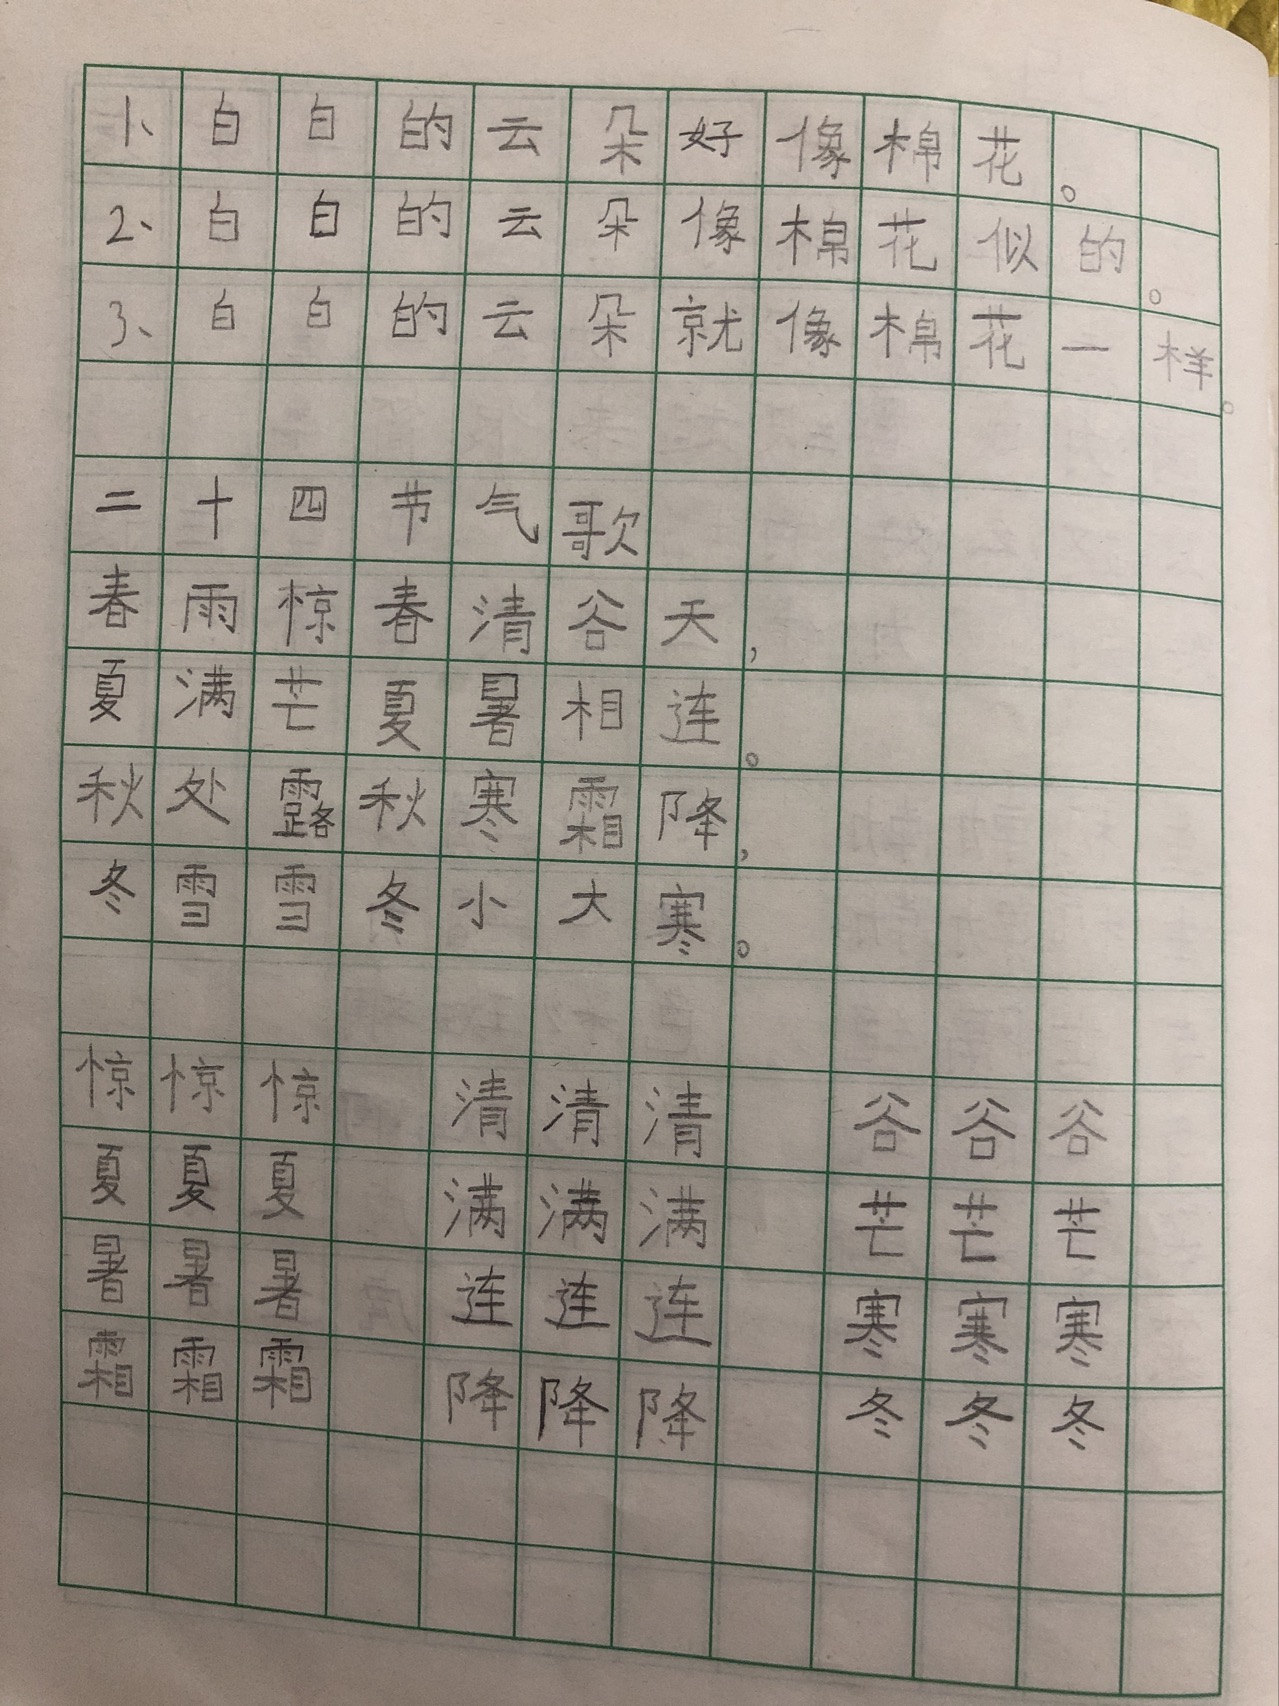 1、白白的云朵好像棉花。
2、白白的云朵像棉花似的。
3、白白的云朵就像棉花一样。
二十四节气歌
春雨惊春清谷天，
夏满芒夏暑相连。
秋处露秋寒霜降，
冬雪雪冬小大寒。
惊惊惊 清清清 谷谷谷
夏夏夏 满满满 芒芒芒
暑暑暑 连连连 寒寒寒
霜霜霜 降降降 冬冬冬